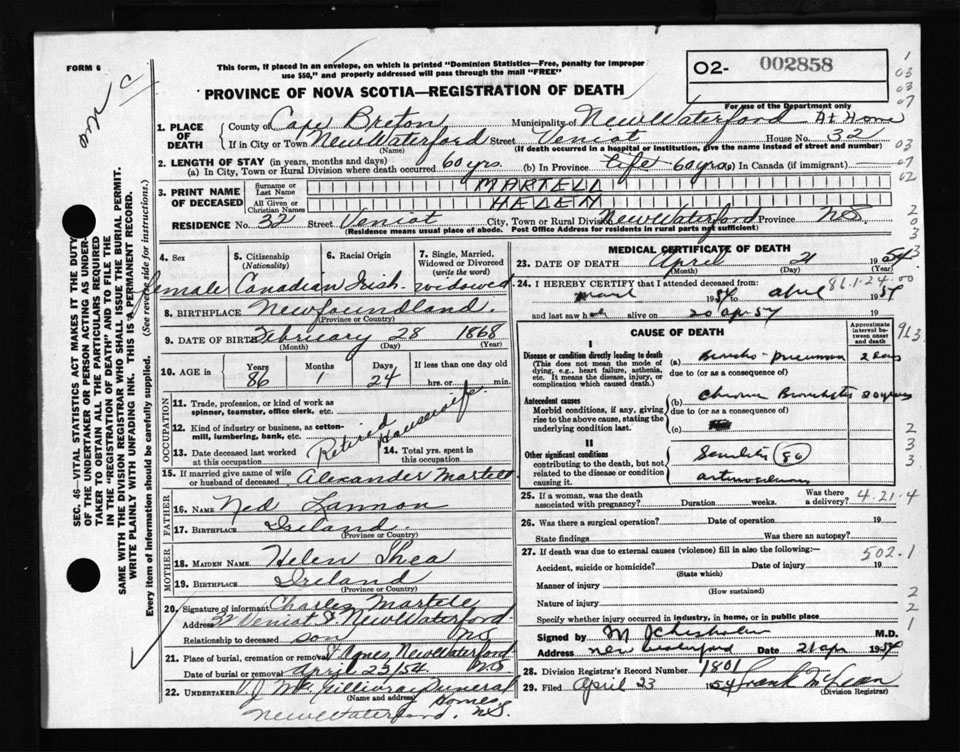 FORM 6
This form, if placed in an envelope, on which is printed "Dominion Statistics—Free, penalty for improper
use $50," and properly addressed will pass through the mail "FREE"
O2- 002858
PROVINCE OF NOVA SCOTIA—REGISTRATION OF DEATH
For use of the Department only
1. PLACE OF DEATH
County of Cape Breton Municipality of New Waterford At Home
If in City or Town New Waterford Street Veniot House No. 32
(Name) (If death occurred in a hospital or institution, give the name instead of street and number)
2. LENGTH OF STAY (in years, months and days)
(a) In City, Town or Rural Division where death occurred 60 yrs. (b) In Province life 60 yrs (c) In Canada (if immigrant)
3. PRINT NAME OF DECEASED
Surname or Last Name MARTELL
All Given or Christian Names HELEN
RESIDENCE No. 32 Street Veniot City, Town or Rural Division New Waterford Province N.S.
(Residence means usual place of abode. Post Office Address for residents in rural parts not sufficient)
4. Sex
5. Citizenship (Nationality)
6. Racial Origin
7. Single, Married, Widowed or Divorced (write the word)
Female Canadian Irish widowed
8. BIRTHPLACE Newfoundland
(Province or Country)
9. DATE OF BIRTH February 28 1868
(Month) (Day) (Year)
10. AGE in Years Months Days If less than one day old
86 1 24 hrs. or min.
OCCUPATION
11. Trade, profession, or kind of work as spinner, teamster, office clerk, etc.
12. Kind of industry or business, as cotton-mill, lumbering, bank, etc.
Retired Housewife
13. Date deceased last worked at this occupation
14. Total yrs. spent in this occupation
15. If married give name of wife or husband of deceased Alexander Martell
FATHER
16. Name Ned Lannon
17. Birthplace Ireland
(Province or Country)
MOTHER
18. MAIDEN NAME Helen Shea
19. BIRTHPLACE Ireland
(Province or Country)
20. Signature of informant Charles Martell
Address 32 Veniot St New Waterford N.S.
Relationship to deceased son
21. Place of burial, cremation or removal St Agnes, New Waterford NS
Date of burial or removal April 23/54
22. UNDERTAKER V J McGillivray Funeral Homes
(Name and address)
New Waterford, N.S.
MEDICAL CERTIFICATE OF DEATH
23. DATE OF DEATH April 21 1954
(Month) (Day) (Year)
24. I HEREBY CERTIFY that I attended deceased from:
1954 to April 1954
and last saw h alive on 20 Apr 54 19
CAUSE OF DEATH
Approximate interval between onset and death
I
Disease or condition directly leading to death (a) Broncho-pneumonia 2 days
(This does not mean the mode of dying, e.g., heart failure, asthenia, etc. It means the disease, injury, or complication which caused death.)
due to (or as a consequence of)
Antecedent causes (b) Chronic Bronchitis 20 years
Morbid conditions, if any, giving rise to the above cause, stating the underlying condition last.
due to (or as a consequence of)
(c)
II
Other significant conditions Senility (86)
contributing to the death, but not related to the disease or condition causing it.
25. If a woman, was the death associated with pregnancy? Duration weeks. Was there a delivery?
4-21-4
26. Was there a surgical operation? Date of operation 19
State findings Was there an autopsy?
27. If death was due to external causes (violence) fill in also the following:—
502.1
Accident, suicide or homicide? Date of injury 19
(State which)
Manner of injury
(How sustained)
Nature of injury
Specify whether injury occurred in industry, in home, or in public place
Signed by M J Chisholm M.D.
Address New Waterford Date 21 Apr 1954
28. Division Registrar's Record Number 1801
29. Filed April 23 1954 Frank McLean
(Division Registrar)
SEC. 46—VITAL STATISTICS ACT MAKES IT THE DUTY
OF THE UNDERTAKER OR PERSON ACTING AS UNDER-
TAKER TO OBTAIN ALL THE PARTICULARS REQUIRED
IN THE "REGISTRATION OF DEATH" AND TO FILE THE
SAME WITH THE DIVISION REGISTRAR WHO SHALL ISSUE THE BURIAL PERMIT.
WRITE PLAINLY WITH UNFADING INK. THIS IS A PERMANENT RECORD.
Every item of information should be carefully supplied. (See reverse side for instructions.)